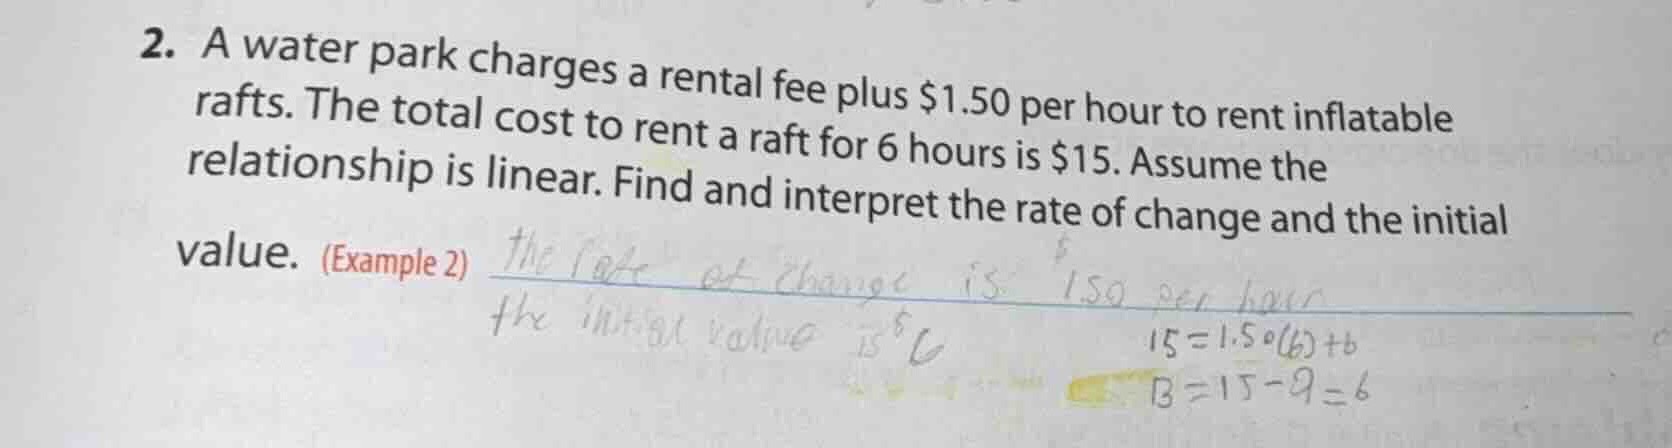 2. A water park charges a rental fee plus $1.50 per hour to rent inflatable
rafts. The total cost to rent a raft for 6 hours is $15. Assume the
relationship is linear. Find and interpret the rate of change and the initial
value. (Example 2) the rate of change is $1.50 per hour
the initial value is $6
15=1.50(6)+b
B=15-9=6